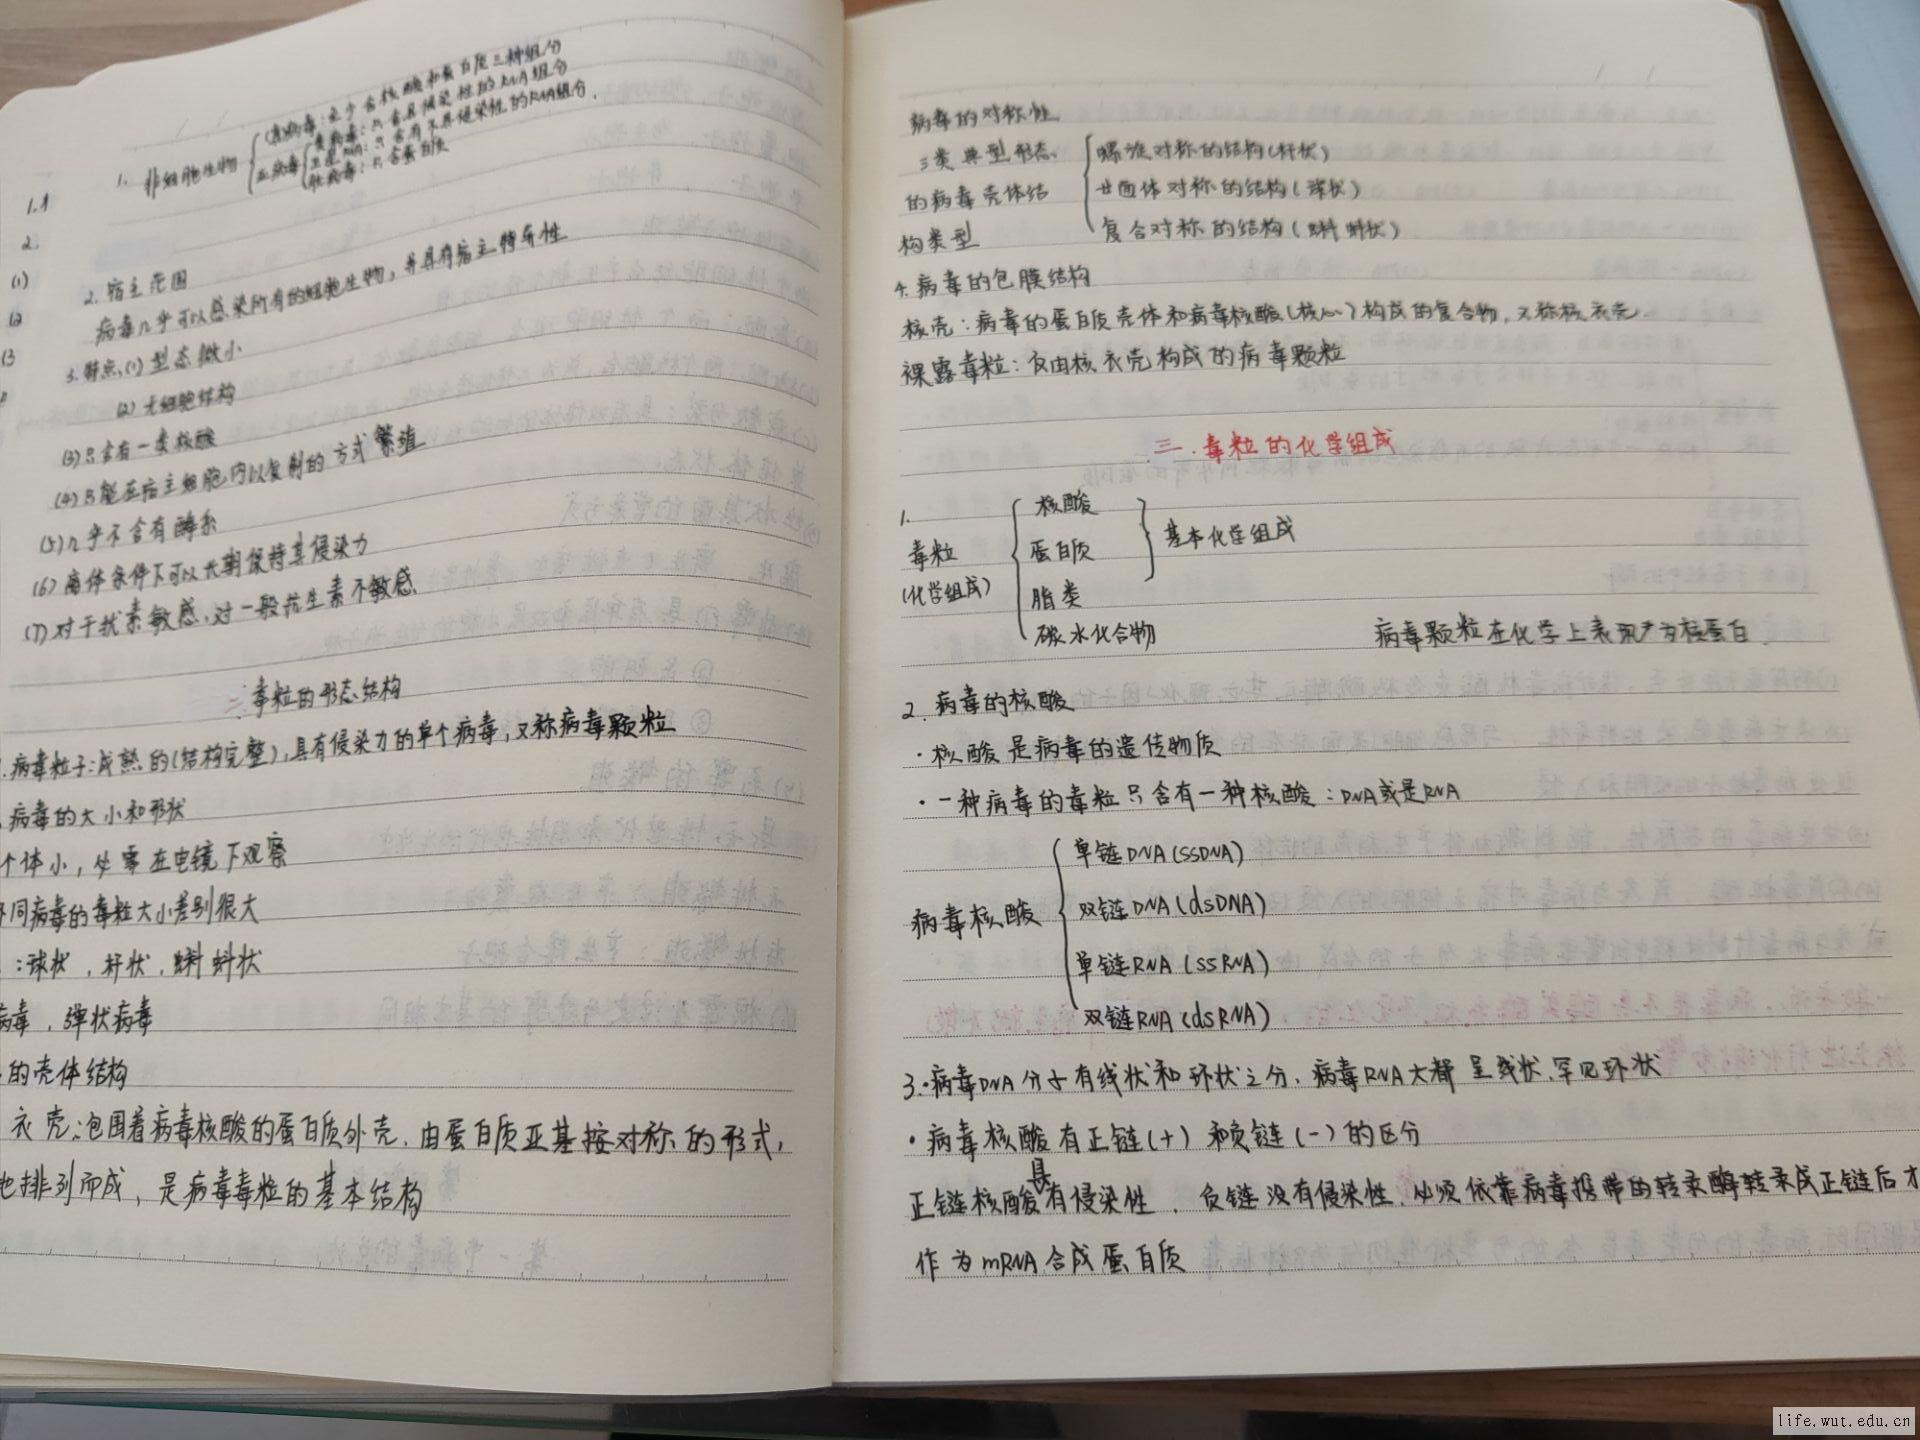 1.1
2.
(1)
(2
(3
1. 非细胞生物
真病毒：至少含核酸和蛋白质二种组分
亚病毒
类病毒：只含具侵染性的RNA组分
卫星RNA：只含有不具侵染性的RNA组分．
朊病毒：只含蛋白质
2. 宿主范围
病毒几乎可以感染所有的细胞生物，并具有宿主特异性
3. 特点．(1) 型态微小
(2) 无细胞结构
(3) 只含有一类核酸
(4) 只能在宿主细胞内以复制的方式繁殖
(5) 几乎不含有酶系
(6) 离体条件下可以长期保持其侵染力
(7) 对干扰素敏感，对一般抗生素不敏感
二、毒粒的形态结构
1. 病毒粒子：成熟的(结构完整)，具有侵染力的单个病毒，又称病毒颗粒
病毒的大小和形状
个体小，必需在电镜下观察
不同病毒的毒粒大小差别很大
：球状，杆状，蝌蚪状
病毒，弹状病毒
的壳体结构
衣壳：包围着病毒核酸的蛋白质外壳，由蛋白质亚基按对称的形式，
地排列而成，是病毒毒粒的基本结构
病毒的对称性
三类典型形态
的病毒壳体结
构类型
螺旋对称的结构(杆状)
廿面体对称的结构(球状)
复合对称的结构(蝌蚪状)
4. 病毒的包膜结构
核壳：病毒的蛋白质壳体和病毒核酸(核心)构成的复合物，又称核衣壳．
裸露毒粒：仅由核衣壳构成的病毒颗粒
三．毒粒的化学组成
1.
毒粒
(化学组成)
核酸
蛋白质
脂类
碳水化合物
基本化学组成
病毒颗粒在化学上表现为核蛋白．
2. 病毒的核酸
·核酸是病毒的遗传物质
·一种病毒的毒粒只含有一种核酸：DNA或是RNA
病毒核酸
单链DNA(ssDNA)
双链DNA(dsDNA)
单链RNA (ssRNA)
双链RNA(dsRNA)
3.·病毒DNA分子有线状和环状之分，病毒RNA大都呈线状，罕见环状
·病毒核酸有正链(+)和负链(-)的区分
正链核酸具有侵染性，负链没有侵染性，必须依靠病毒携带的转录酶转录成正链后才
作为mRNA合成蛋白质
life.wut.edu.cn